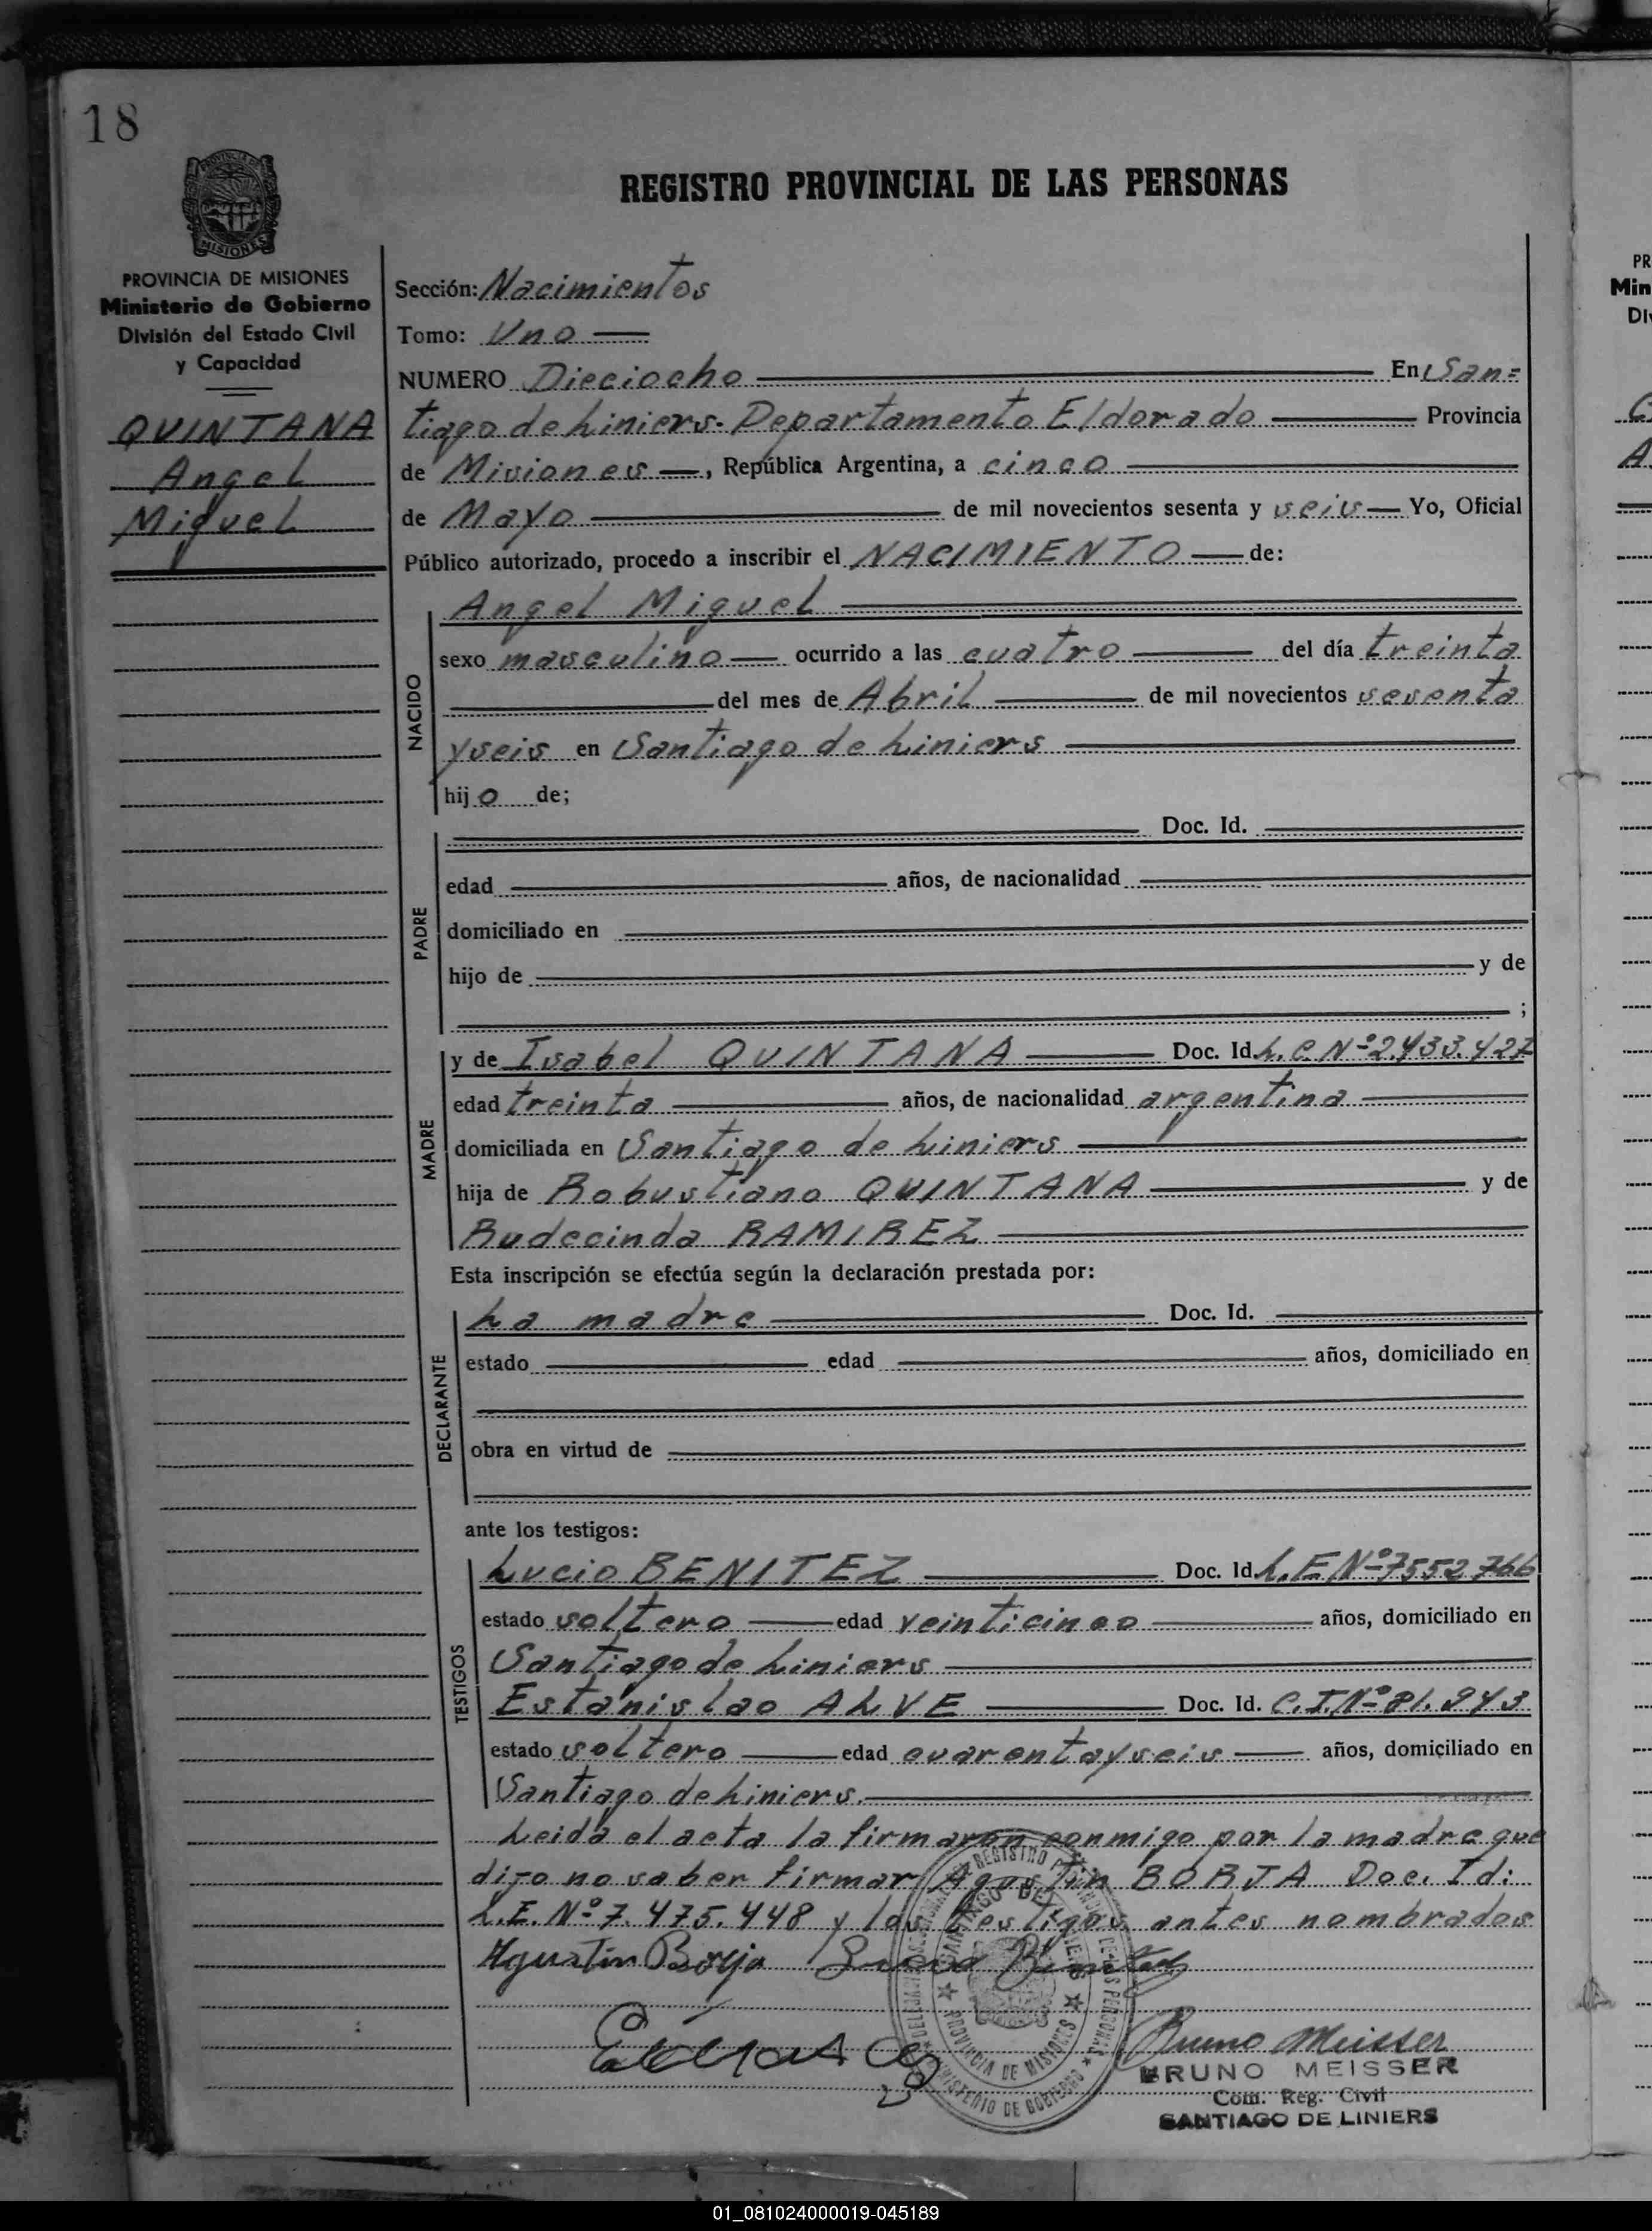 18
REGISTRO PROVINCIAL DE LAS PERSONAS
PROVINCIA DE MISIONES
Ministerio de Gobierno
División del Estado Civil
y Capacidad
QUINTANA
Angel
Miguel
Sección: Nacimientos
Tomo: Uno
NUMERO Dieciocho En San=
tiago de Liniers. Departamento Eldorado Provincia
de Misiones, República Argentina, a cinco
de Mayo de mil novecientos sesenta y seis Yo, Oficial
Público autorizado, procedo a inscribir el NACIMIENTO de:
NACIDO
Angel Miguel
sexo masculino ocurrido a las cuatro del día treinta
del mes de Abril de mil novecientos sesenta
y seis en Santiago de Liniers
hijo de;
PADRE
Doc. Id.
edad años, de nacionalidad
domiciliado en
hijo de y de
;
MADRE
y de Isabel QUINTANA Doc. Id. L.C. Nº 2.433.427
edad treinta años, de nacionalidad argentina
domiciliada en Santiago de Liniers
hija de Robustiano QUINTANA y de
Rudecinda RAMIREZ
Esta inscripción se efectúa según la declaración prestada por:
DECLARANTE
La madre Doc. Id.
estado edad años, domiciliado en
obra en virtud de
ante los testigos:
TESTIGOS
Lucio BENITEZ Doc. Id. L.E Nº 7552766
estado soltero edad veinticinco años, domiciliado en
Santiago de Liniers
Estanislao ALVE Doc. Id. C.I. Nº 81.943
estado soltero edad cuarenta y seis años, domiciliado en
Santiago de Liniers.
Leida el acta la firmaron conmigo por la madre que
dijo no saber firmar Agustín BORJA Doc. Id:
L.E. Nº 7.475.448 y los testigos antes nombrados
Agustín Borja Lucio Benitez
Bruno Meisser
BRUNO MEISSER
Com. Reg. Civil
SANTIAGO DE LINIERS
REGISTRO PROVINCIAL DE LAS PERSONAS
SANTIAGO DE LINIERS
PROVINCIA DE MISIONES
MINISTERIO DE GOBIERNO
PR
Min
Div
01_081024000019-045189